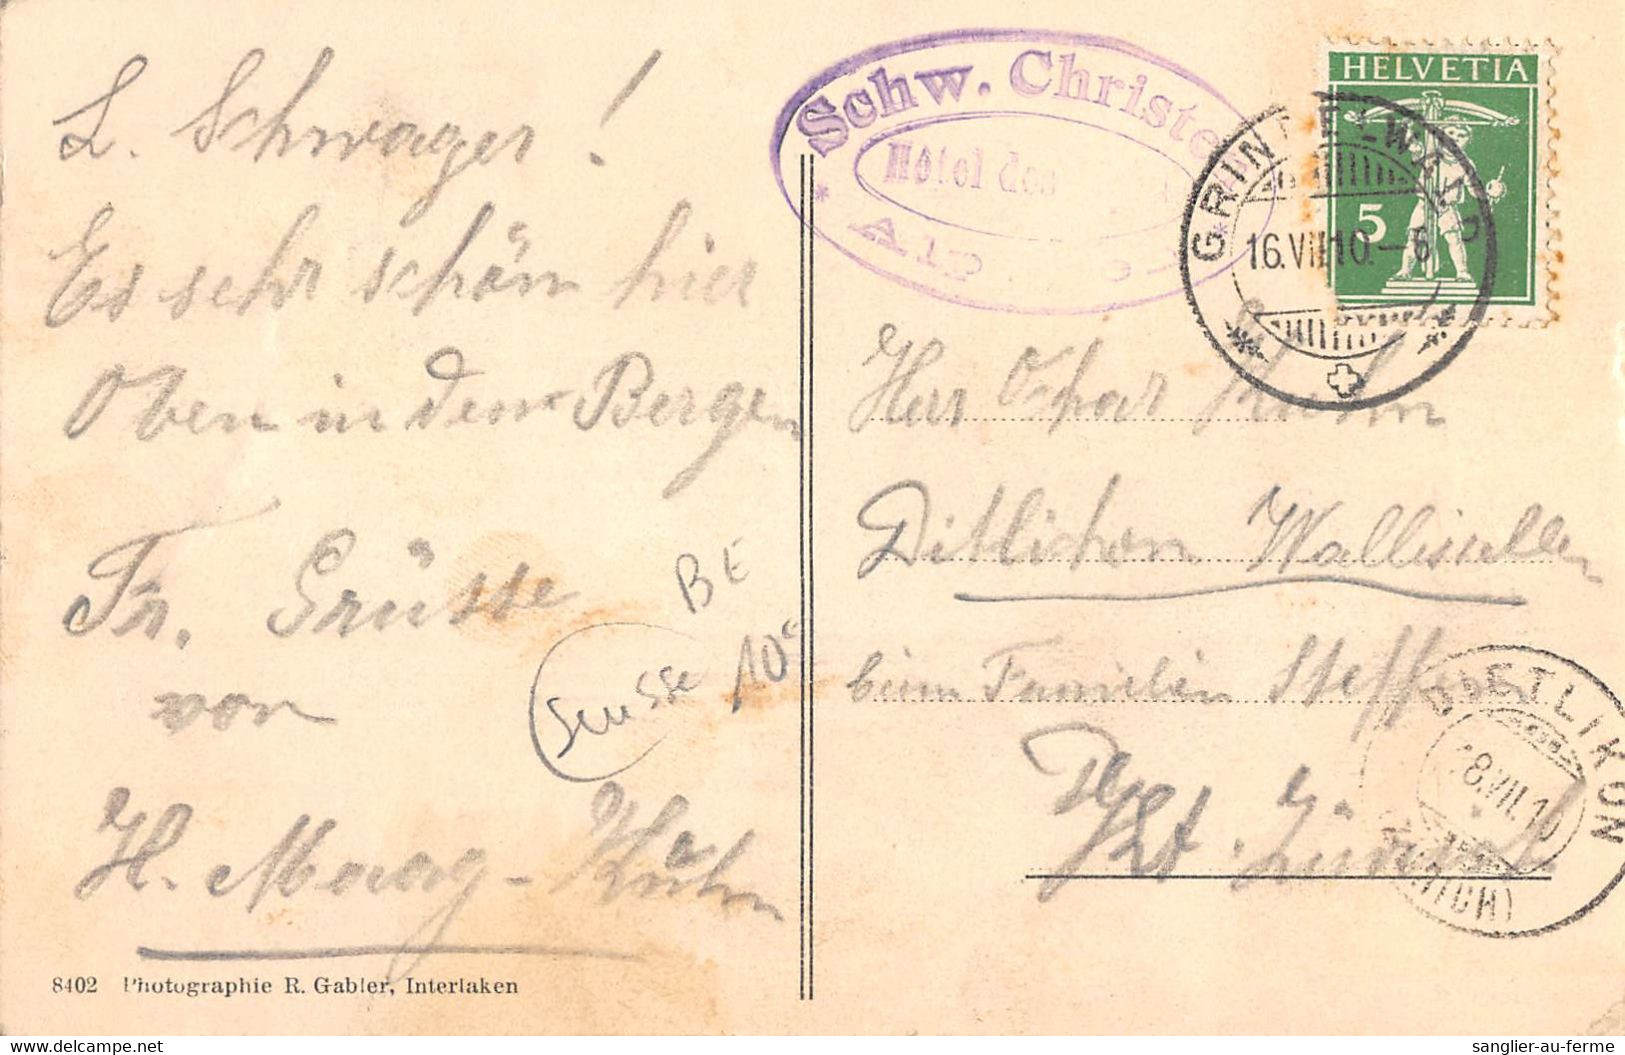 L. Schwager!
Es sehr schön hier
Oben in den Bergen
Fr. Grüsse
von
H. Maag-Kuhn
Suisse
BE
10c
8402 Photographie R. Gabler, Interlaken
Schw. Christe
Hôtel des
Alp
HELVETIA
5
GRINDELWALD
16.VII.10.-6
Herr Oskar Kuhn
Ditlichon Wallisellen
beim Familien Steffen
Kt. Zürich
DIETLIKON
18.VII.10
(ZÜRICH)
sanglier-au-ferme